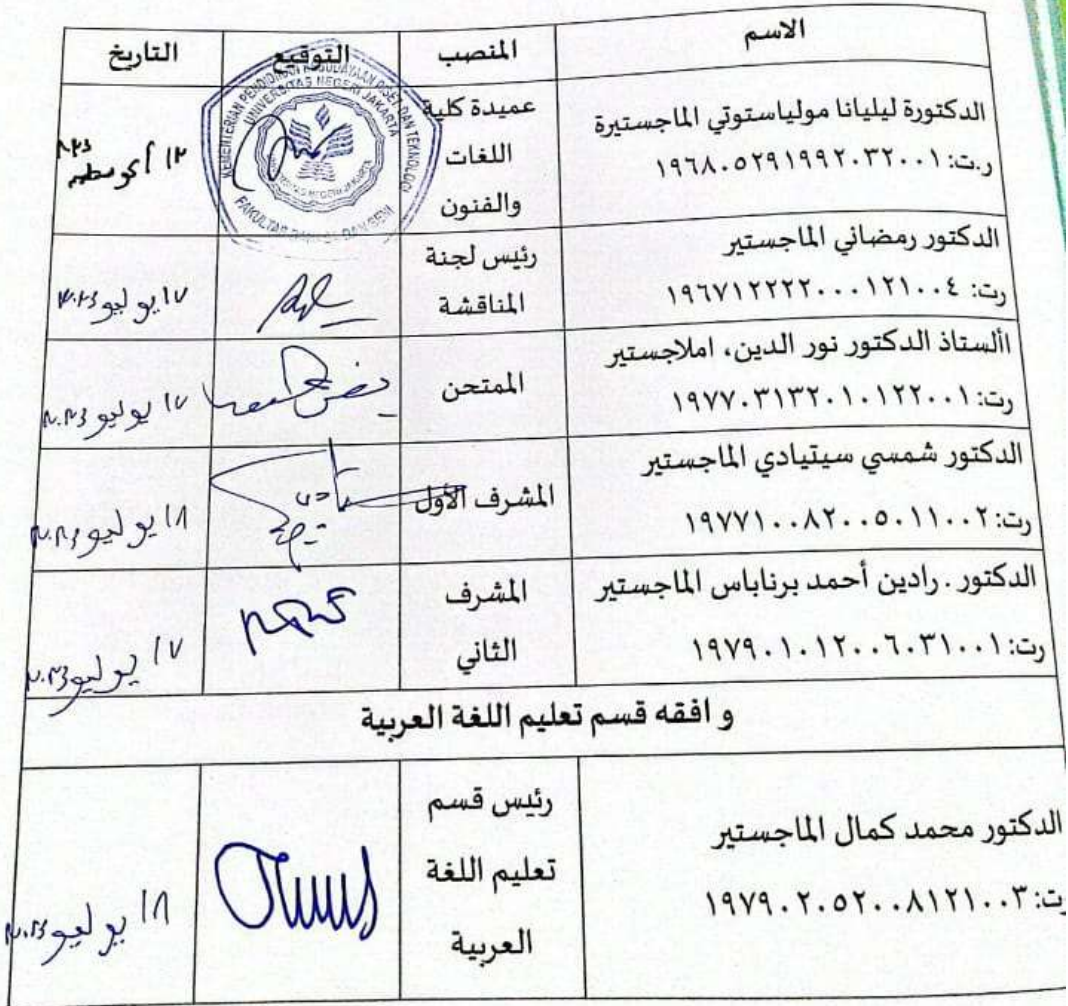 الاسم
المنصب
التوقيع
التاريخ
الدكتورة ليليانا مولياستوتي الماجستيرة
ر.ت: ١٩٦٨٠٥٢٩١٩٩٢٠٣٢٠٠١
عميدة كلية
اللغات
والفنون
KEMENTERIAN PENDIDIKAN KEBUDAYAAN RISET DAN TEKNOLOGI
UNIVERSITAS NEGERI JAKARTA
FAKULTAS BAHASA DAN SENI
الدكتور رمضاني الماجستير
رت: ١٩٦٧١٢٢٢٢٠٠٠١٢١٠٠٤
رئيس لجنة
المناقشة
١٧ يوليو ٢٠٢٣
األستاذ الدكتور نور الدين، املاجستير
رت: ١٩٧٧٠٣١٣٢٠١٠١٢٢٠٠١
الممتحن
١٧ يوليو ٢٠٢٣
الدكتور شمسي سيتيادي الماجستير
رت: ١٩٧٧١٠٠٨٢٠٠٥٠١١٠٠٢
المشرف الأول
١٨ يوليو ٢٠٢٣
الدكتور . رادين أحمد برناباس الماجستير
رت: ١٩٧٩٠١٠١٢٠٠٦٠٣١٠٠١
المشرف
الثاني
١٧ يوليو ٢٠٢٣
و افقه قسم تعليم اللغة العربية
الدكتور محمد كمال الماجستير
رت: ١٩٧٩٠٢٠٥٢٠٠٨١٢١٠٠٣
رئيس قسم
تعليم اللغة
العربية
١٨ يوليو ٢٠٢٣